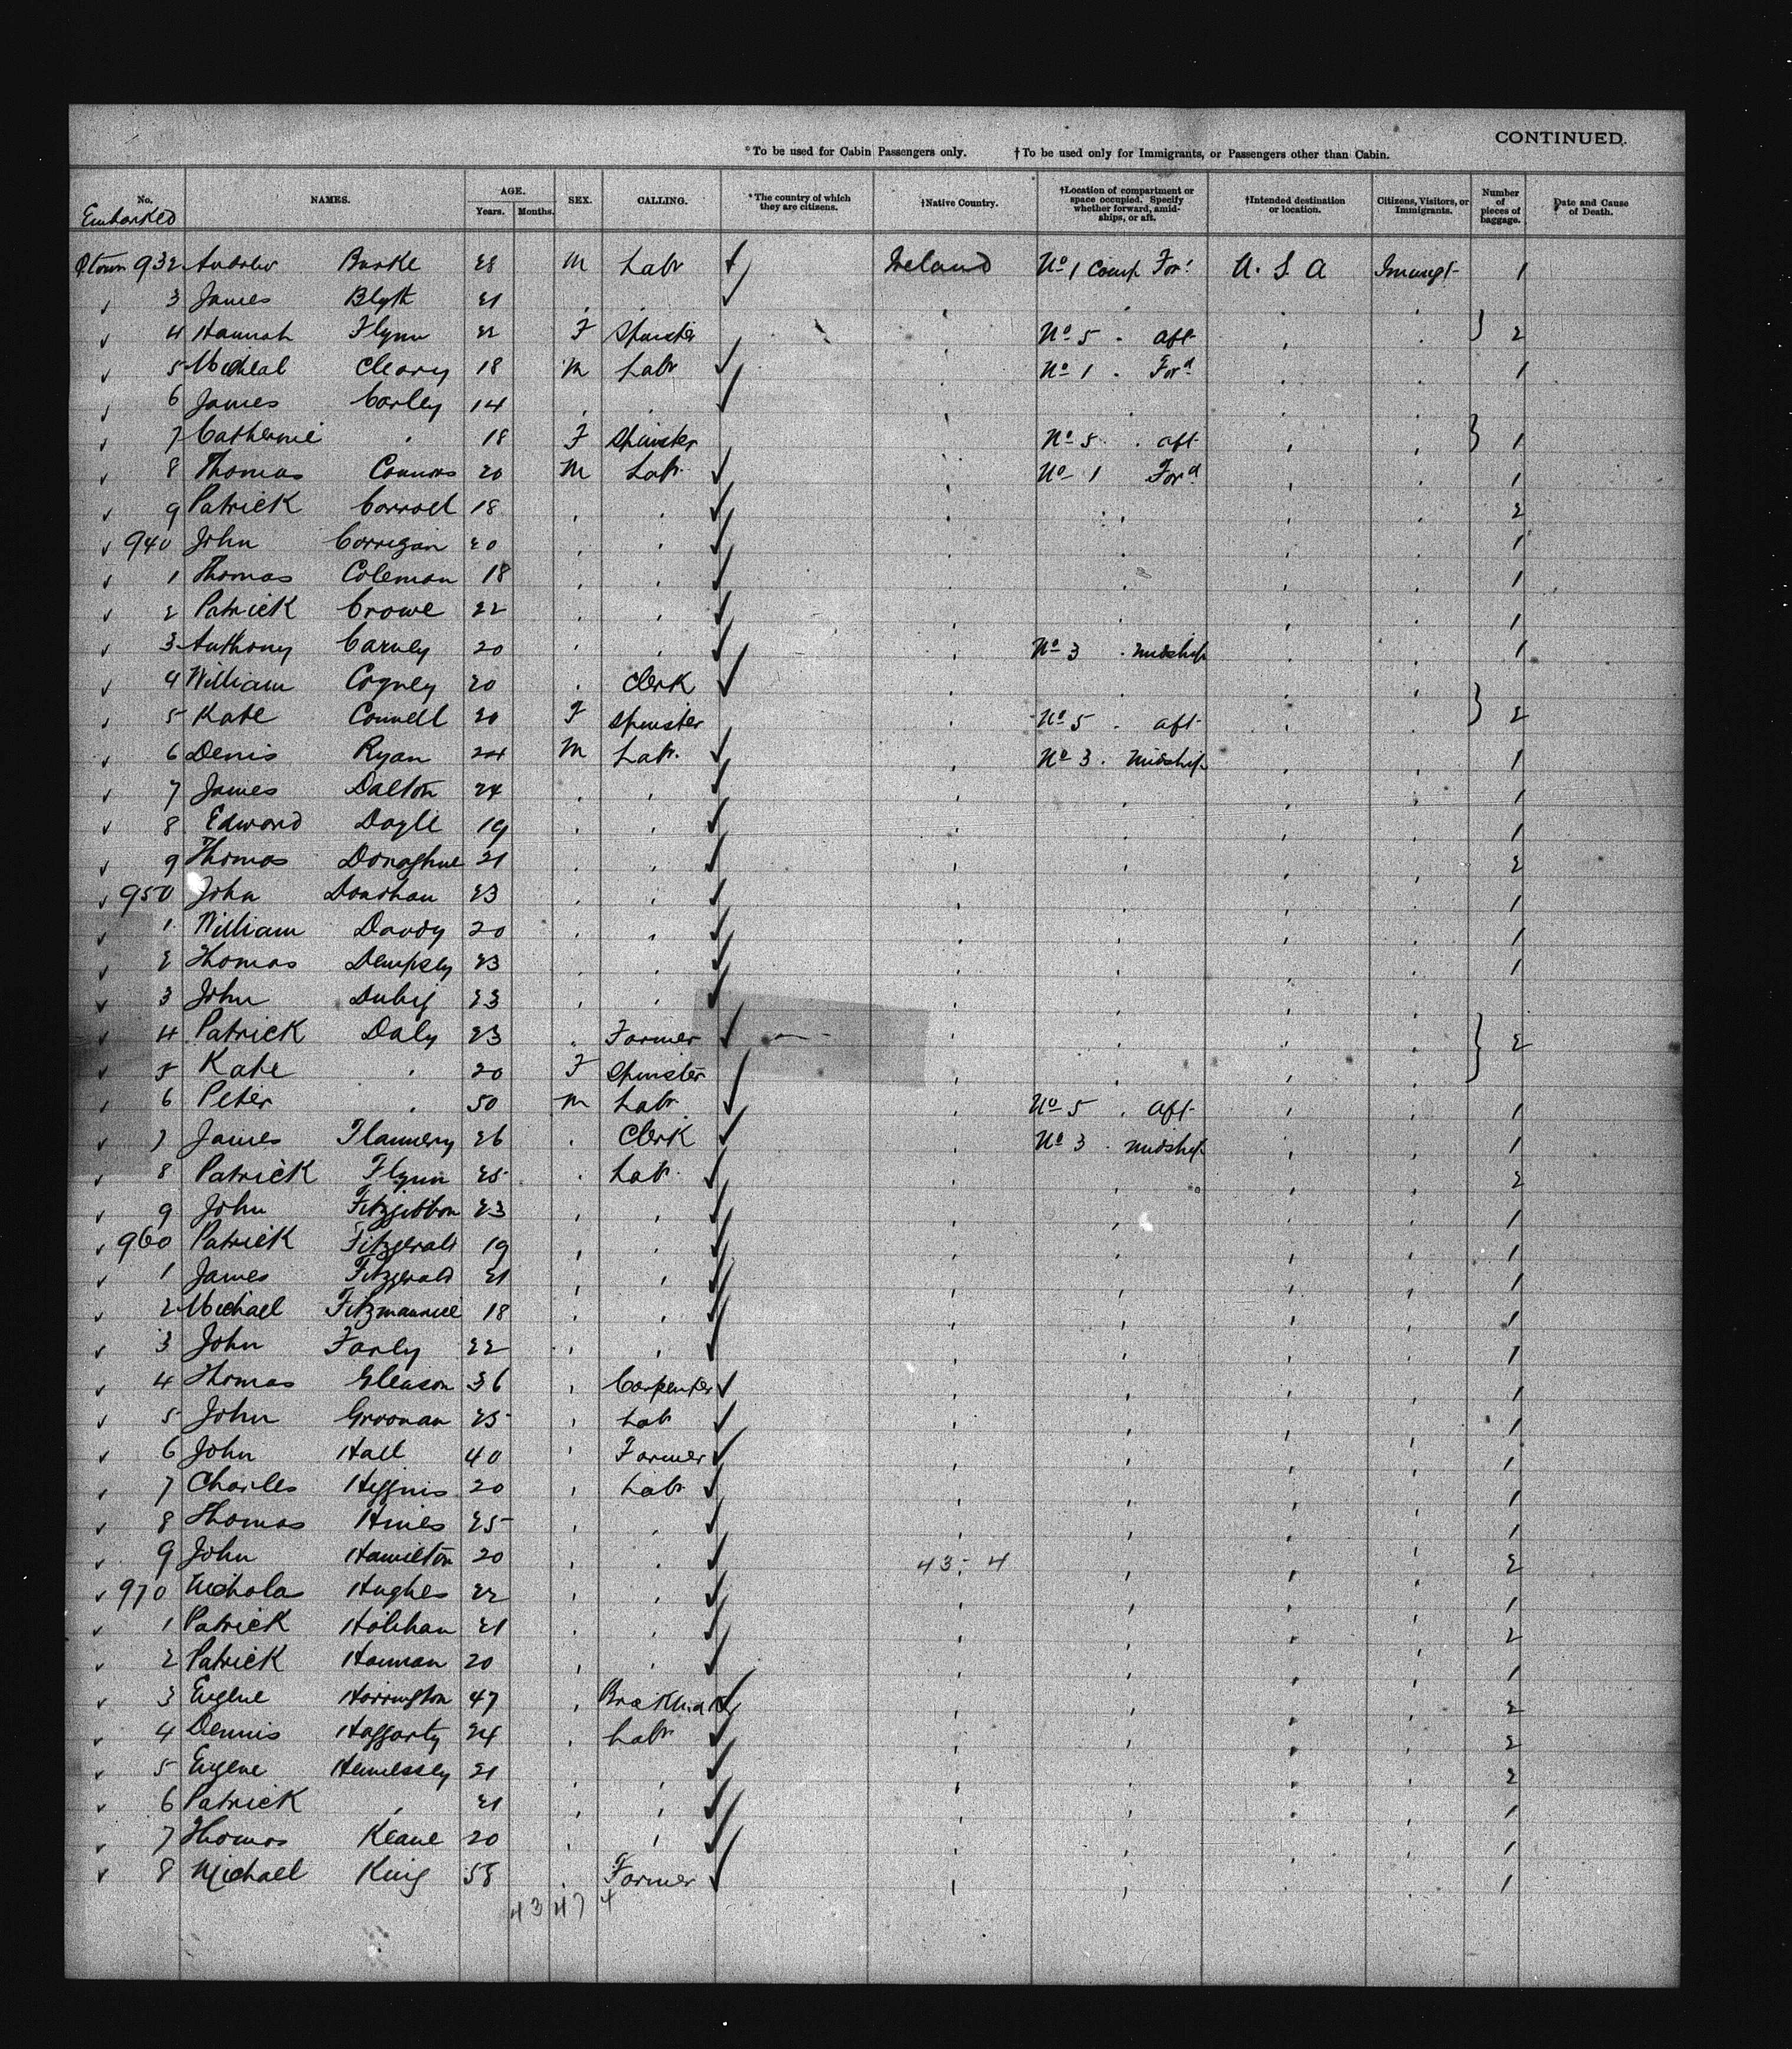 CONTINUED.
*To be used for Cabin Passengers only. †To be used only for Immigrants, or Passengers other than Cabin.
No. NAMES. AGE. Years. Months. SEX. CALLING. *The country of which they are citizens. †Native Country. †Location of compartment or space occupied. Specify whether forward, amidships, or aft. †Intended destination or location. Citizens, Visitors, or Immigrants. Number of pieces of baggage. Date and Cause of Death.
Embarked
Qtown 932 Andrew Burke 28 M Labr Ireland No 1 Comp For' U. S. A Immigt 1
3 James Blyth 21
4 Hannah Flynn 22 F Spinster No 5 aft } 2
5 Micheal Cleary 18 M Labr No 1 Ford 1
6 James Corley 14
7 Catherine " 18 F Spinster No 5 aft } 1
8 Thomas Connors 20 M Labr No 1 Ford 1
9 Patrick Carroll 18 2
940 John Corrigan 20 1
1 Thomas Coleman 18 1
2 Patrick Crowe 22 1
3 Anthony Carney 20 No 3 midship 1
4 William 20 Clerk
5 Kate Connell 20 F Spinster No 5 aft } 2
6 Denis Ryan 24 M Labr. No 3 midship 1
7 James Dalton 24 1
8 Edward Doyle 19 1
9 Thomas Donoghue 21 2
950 John 23 1
1 William 20 1
2 Thomas Dempsey 23 1
3 John 23
4 Patrick Daly 23 Farmer } 2
5 Kate " 20 F Spinster
6 Peter " 50 M Labr No 5 aft 1
7 James Flannery 26 Clerk No 3 midship 1
8 Patrick Flynn 25 Labr 2
9 John Fitzgibbon 23 1
960 Patrick Fitzgerald 19 1
1 James Fitzgerald 21 1
2 Michael Fitzmaurice 18 1
3 John Farly 22 1
4 Thomas Gleason 36 Carpenter 1
5 John Groonan 25 Labr 1
6 John Hall 40 Farmer 1
7 Charles Higgins 20 Labr 1
8 Thomas Hines 25 1
9 John Hamilton 20 43 - 4 2
970 Nicholas Hughes 22 1
1 Patrick Holihan 21 2
2 Patrick Hannan 20 1
3 Eugene Harrington 47 2
4 Dennis Haggarty 24 Labr 2
5 Eugene Hennessey 21 2
6 Patrick " 21 1
7 Thomas Keane 20 1
8 Michael King 58 Farmer 1
43 47 4